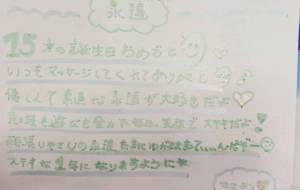 永遠
15才の誕生日おめでとう
いつもマッサージしてくれてありがとう
優しくて素直な永遠が大好きだよ
勉強も遊びも全力で毎日、笑顔がステキだよ
頑張りやさんの永遠
ステキな1年になりますように
ママより